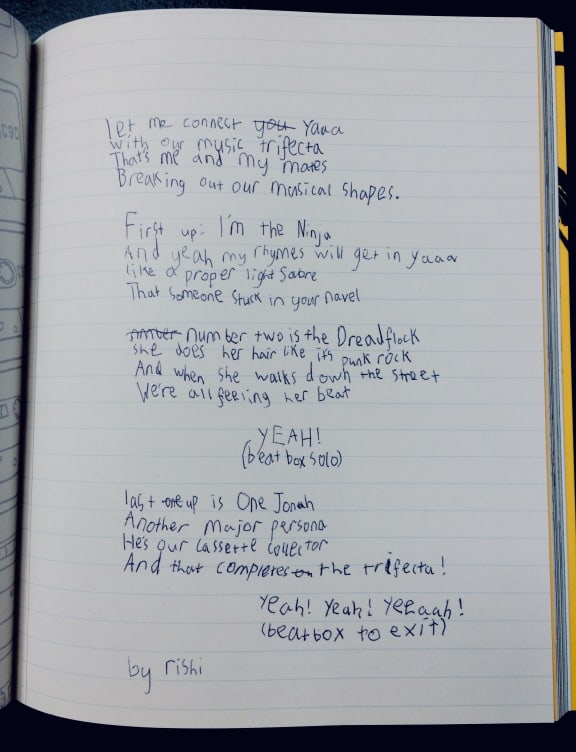 let me connect you Yaaa
with our music trifecta
That's me and my mates
Breaking out our musical shapes.
First up: I'm the Ninja
And yeah my rhymes will get in yaaa
like a proper light Sabre
That someone stuck in your navel
number number two is the Dreadflock
she does her hair like it's punk rock
And when she walks down the street
We're all feeling her beat
YEAH!
(beat box solo)
last one up is One Jonah
Another major persona
He's our cassette collector
And that completes on the trifecta!
Yeah! Yeah! Yeeaah!
(beatbox to exit)
by rishi